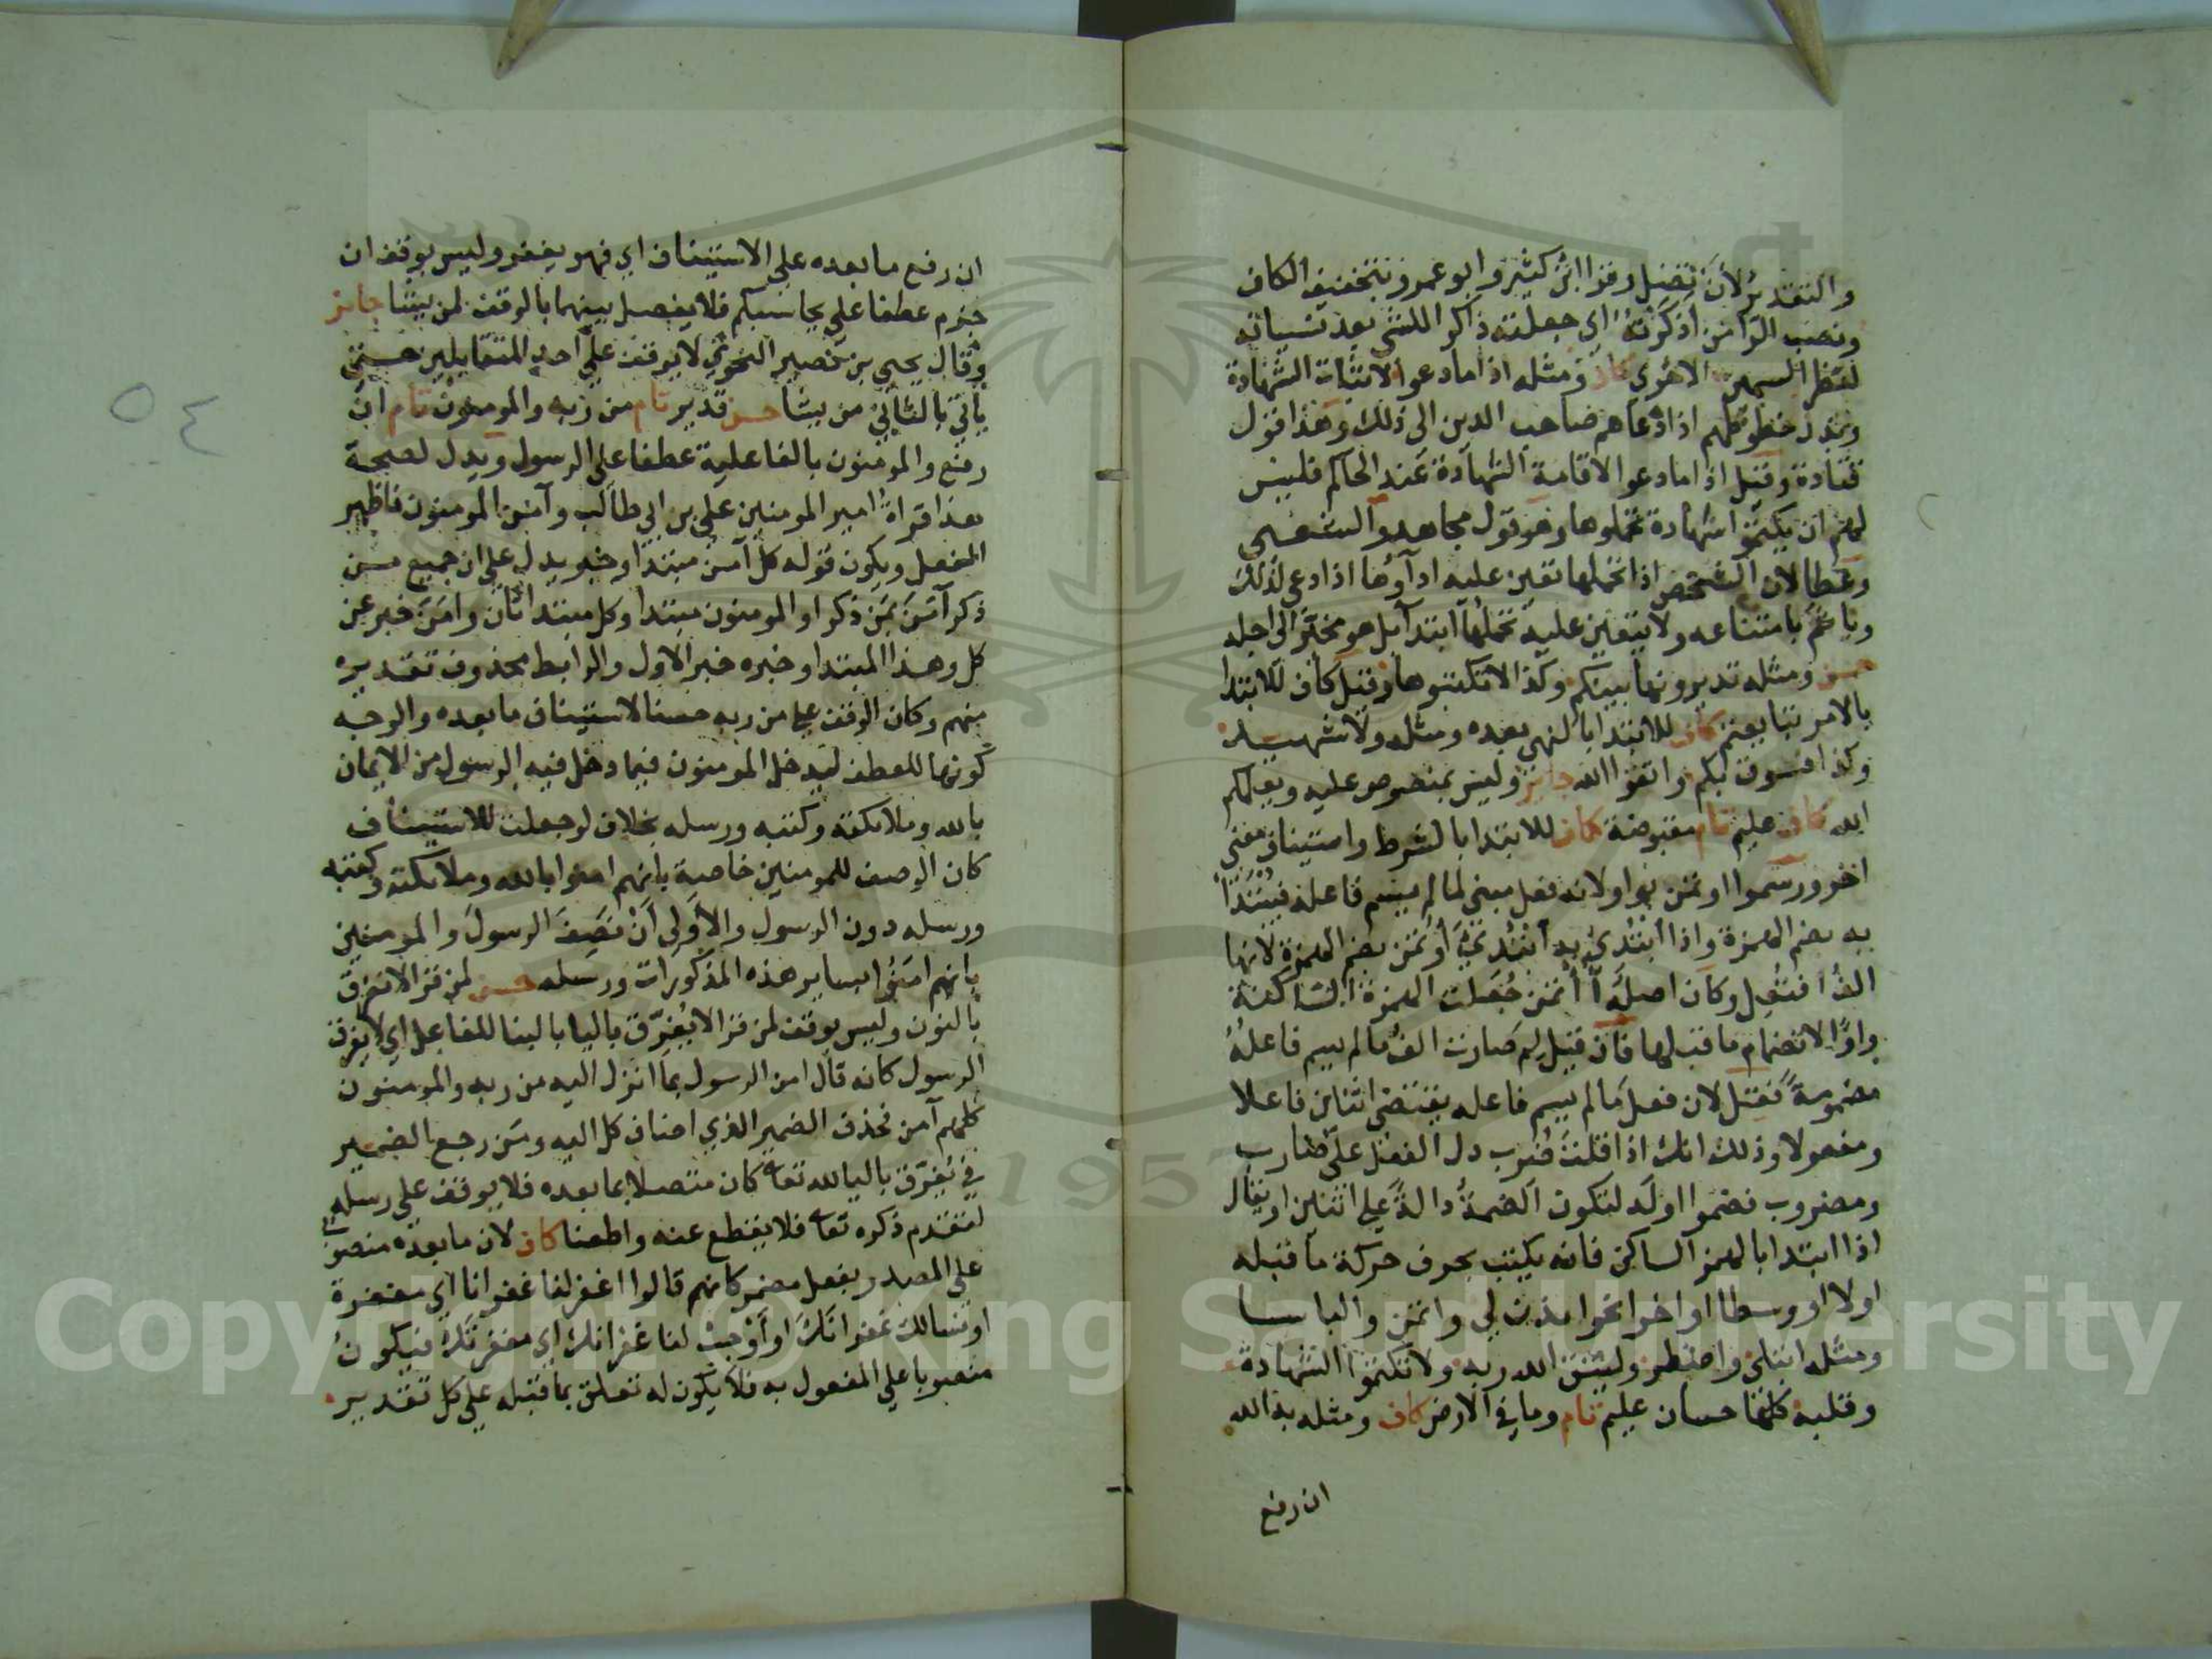 والتقدير لأن تضل وقرا ابن كثير وابو عمرو بتخفيف الكاف
ونصب الرا من اذكرته اي جعلته ذاكرا للشي بعد نسيانه
الاخري كاف ومثله اذا ما دعوا لاثبات الشهادة
وبذل خطوطهم اذا دعاهم صاحب الدين الى ذلك وهذا قول
قتادة وقيل اذا ما دعوا لاقامة الشهادة عند الحاكم فليس
لهم ان يكتموا شهادة تحملوها وهو قول مجاهد والشعبي
وعطا لان الشخص اذا تحملها تعين عليه اداوها اذا دعي لذلك
وياثم بامتناعه ولا يتعين عليه تحملها ابتدا بل هو مخير الى اجله
حسن ومثله تديرونها بينكم وكذا الا تكتبوها وقيل كاف للابتدا
بالامر تبايعتم كاف للابتدا بالنهي بعده ومثله ولا شهيد
وكذا فسوق بكم واتقوا الله جايز وليس بمنصوص عليه ويعلمكم
الله كاف عليم تام مقبوضة كاف للابتدا بالشرط واستيناف معني
اخر ورسموا اوتمن بواو لانه فعل مبني لما لم يسم فاعله فيبتدا
به بضم الهمزة واذا ابتدئ به ابتدئ أوتمن بضم الهمزة لانها
الف افتعل وكان اصله أأتمن جعلت الهمزة الساكنة
واوا لانضمام ما قبلها فان قيل لم صارت الف ما لم يسم فاعله
مضمومة فقل لان فعل ما لم يسم فاعله يقتضي اثنان فاعلا
ومفعولا وذلك انك اذا قلت ضرب دل الفعل على ضارب
ومضروب فضموا اوله لتكون الضمة دالة على اثنين او يقال
اذا ابتدا بالهمز الساكن فانه يكتب بحرف حركة ما قبله
اولا او وسطا او اخرا نحو ايذن لي واتمن والباسا
ومثله ابتلي واضطر وليتق الله ربه ولا تكتموا الشهادة
وقلبه كلها حسان عليم تام وما في الارض كاف ومثله به الله
ان رفع
ان رفع ما بعده على الاستيناف اي فهو يغفر وليس بوقف ان
جزم عطفا على يحاسبكم فلا يفصل بينهما بالوقف لمن يشا جايز
وقال يحيى بن نصير النحوي لا يوقف على احد المتقابلين حتى
يأتي بالثاني من يشا حسن قدير تام من ربه والمومنون تام ان
رفع والمومنون بالفاعلية عطفا على الرسول ويدل لصحة
هذا قراة امير المومنين علي بن ابي طالب وآمن المومنون فاظهر
الفعل ويكون قوله كل آمن مبتدا وخبر يدل على ان جميع من
ذكر آمن بمن ذكر او المومنون مبتدا وكل مبتدا ثان وامن خبر عن
كل وهذا المبتدا وخبره خبر الاول والرابط محذوف تقديره
منهم وكان الوقف على من ربه حسنا لاستيناف ما بعده والوجه
كونها للعطف ليدخل المومنون فيما دخل فيه الرسول من الايمان
بالله وملائكته وكتبه ورسله بخلاف لو جعلت للاستيناف
كان الوصف للمومنين خاصة بانهم امنوا بالله وملائكته وكتبه
ورسله دون الرسول والأولى أن نصف الرسول والمومنين
بانهم امنوا بساير هذه المذكورات ورسله حسن لمن قرا لا نفرق
بالنون وليس بوقف لمن قرا لا يفرق باليا بالبنا للفاعل اي لا يفرق
الرسول كانه قال امن الرسول بما انزل اليه من ربه والمومنون
كلهم آمن فحذف الضمير الذي اضاف كل اليه ومن رجع الضمير
في يفرق باليا لله تعا كان متصلا بما بعده فلا يوقف على رسله
لتقدم ذكره تعا فلا يقطع عنه واطعنا كاف لان ما بعده منصوب
على المصدر بفعل مضمر كانهم قالوا اغفر لنا غفرانا اي مغفرة
او نسالك غفرانك او أوجب لنا غفرانك اي مغفرتك فيكون
منصوبا على المفعول به فلا يكون له تعلق بما قبله على كل تقدير
٥٤
Copyright © King Saud University
1957